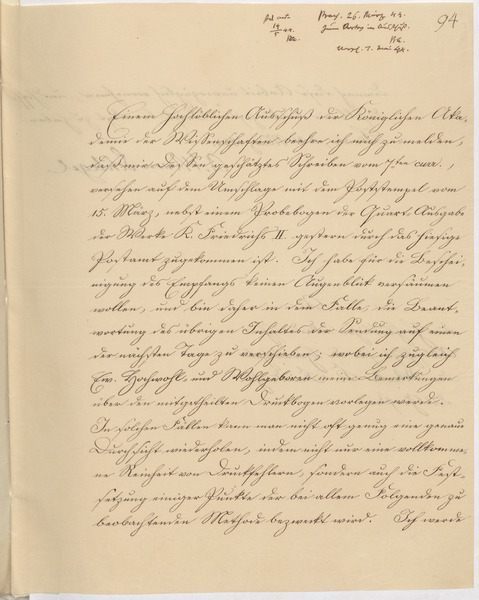 94
Praes. 26. März 44.
ad acta
Einem Hochlöblichen Ausschuß der Königlichen Aka-
demie der Wissenschaften beehre ich mich zu melden,
daß mir Dessen geschätztes Schreiben vom 7ten curr.,
versehen auf dem Umschlage mit dem Poststempel vom
15. März, nebst einem Probebogen der Quart-Ausgabe
der Werke K. Friedrichs II. gestern durch das hiesige
Postamt zugekommen ist. Ich habe für die Beschei-
nigung des Empfangs keinen Augenblick versäumen
wollen, und bin daher in dem Falle, die Beant-
wortung des übrigen Inhaltes der Sendung auf einen
der nächsten Tage zu verschieben; wobei ich zugleich
Ew. Hochwohl- und Wohlgeboren meine Bemerkungen
über den mitgetheilten Druckbogen vorlegen werde.
In solchen Fällen kann man nicht oft genug eine genaue
Durchsicht wiederholen, indem nicht nur eine vollkomme-
ne Reinheit von Druckfehlern, sondern auch die Fest-
setzung einiger Punkte der bei allem Folgenden zu
beobachtenden Methode bezweckt wird. Ich werde